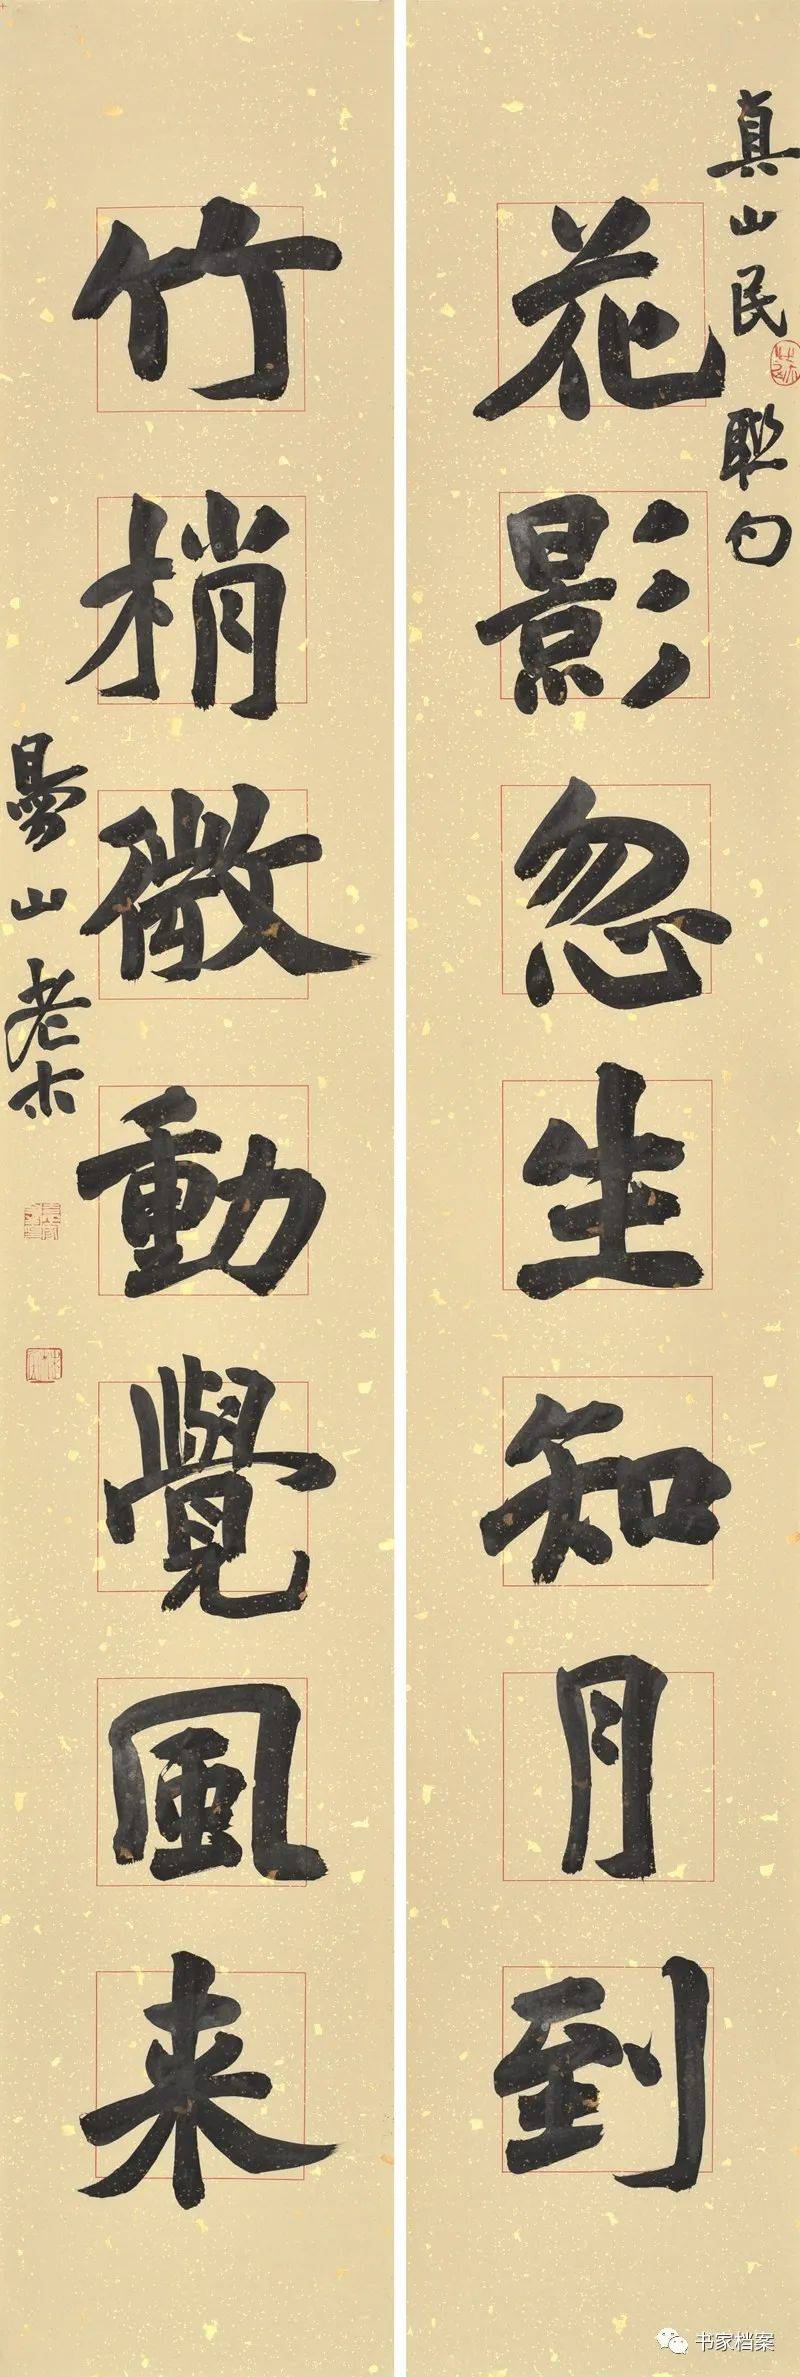 真山民联句
花影忽生知月到
竹梢微動覺風来
山老木
书家档案